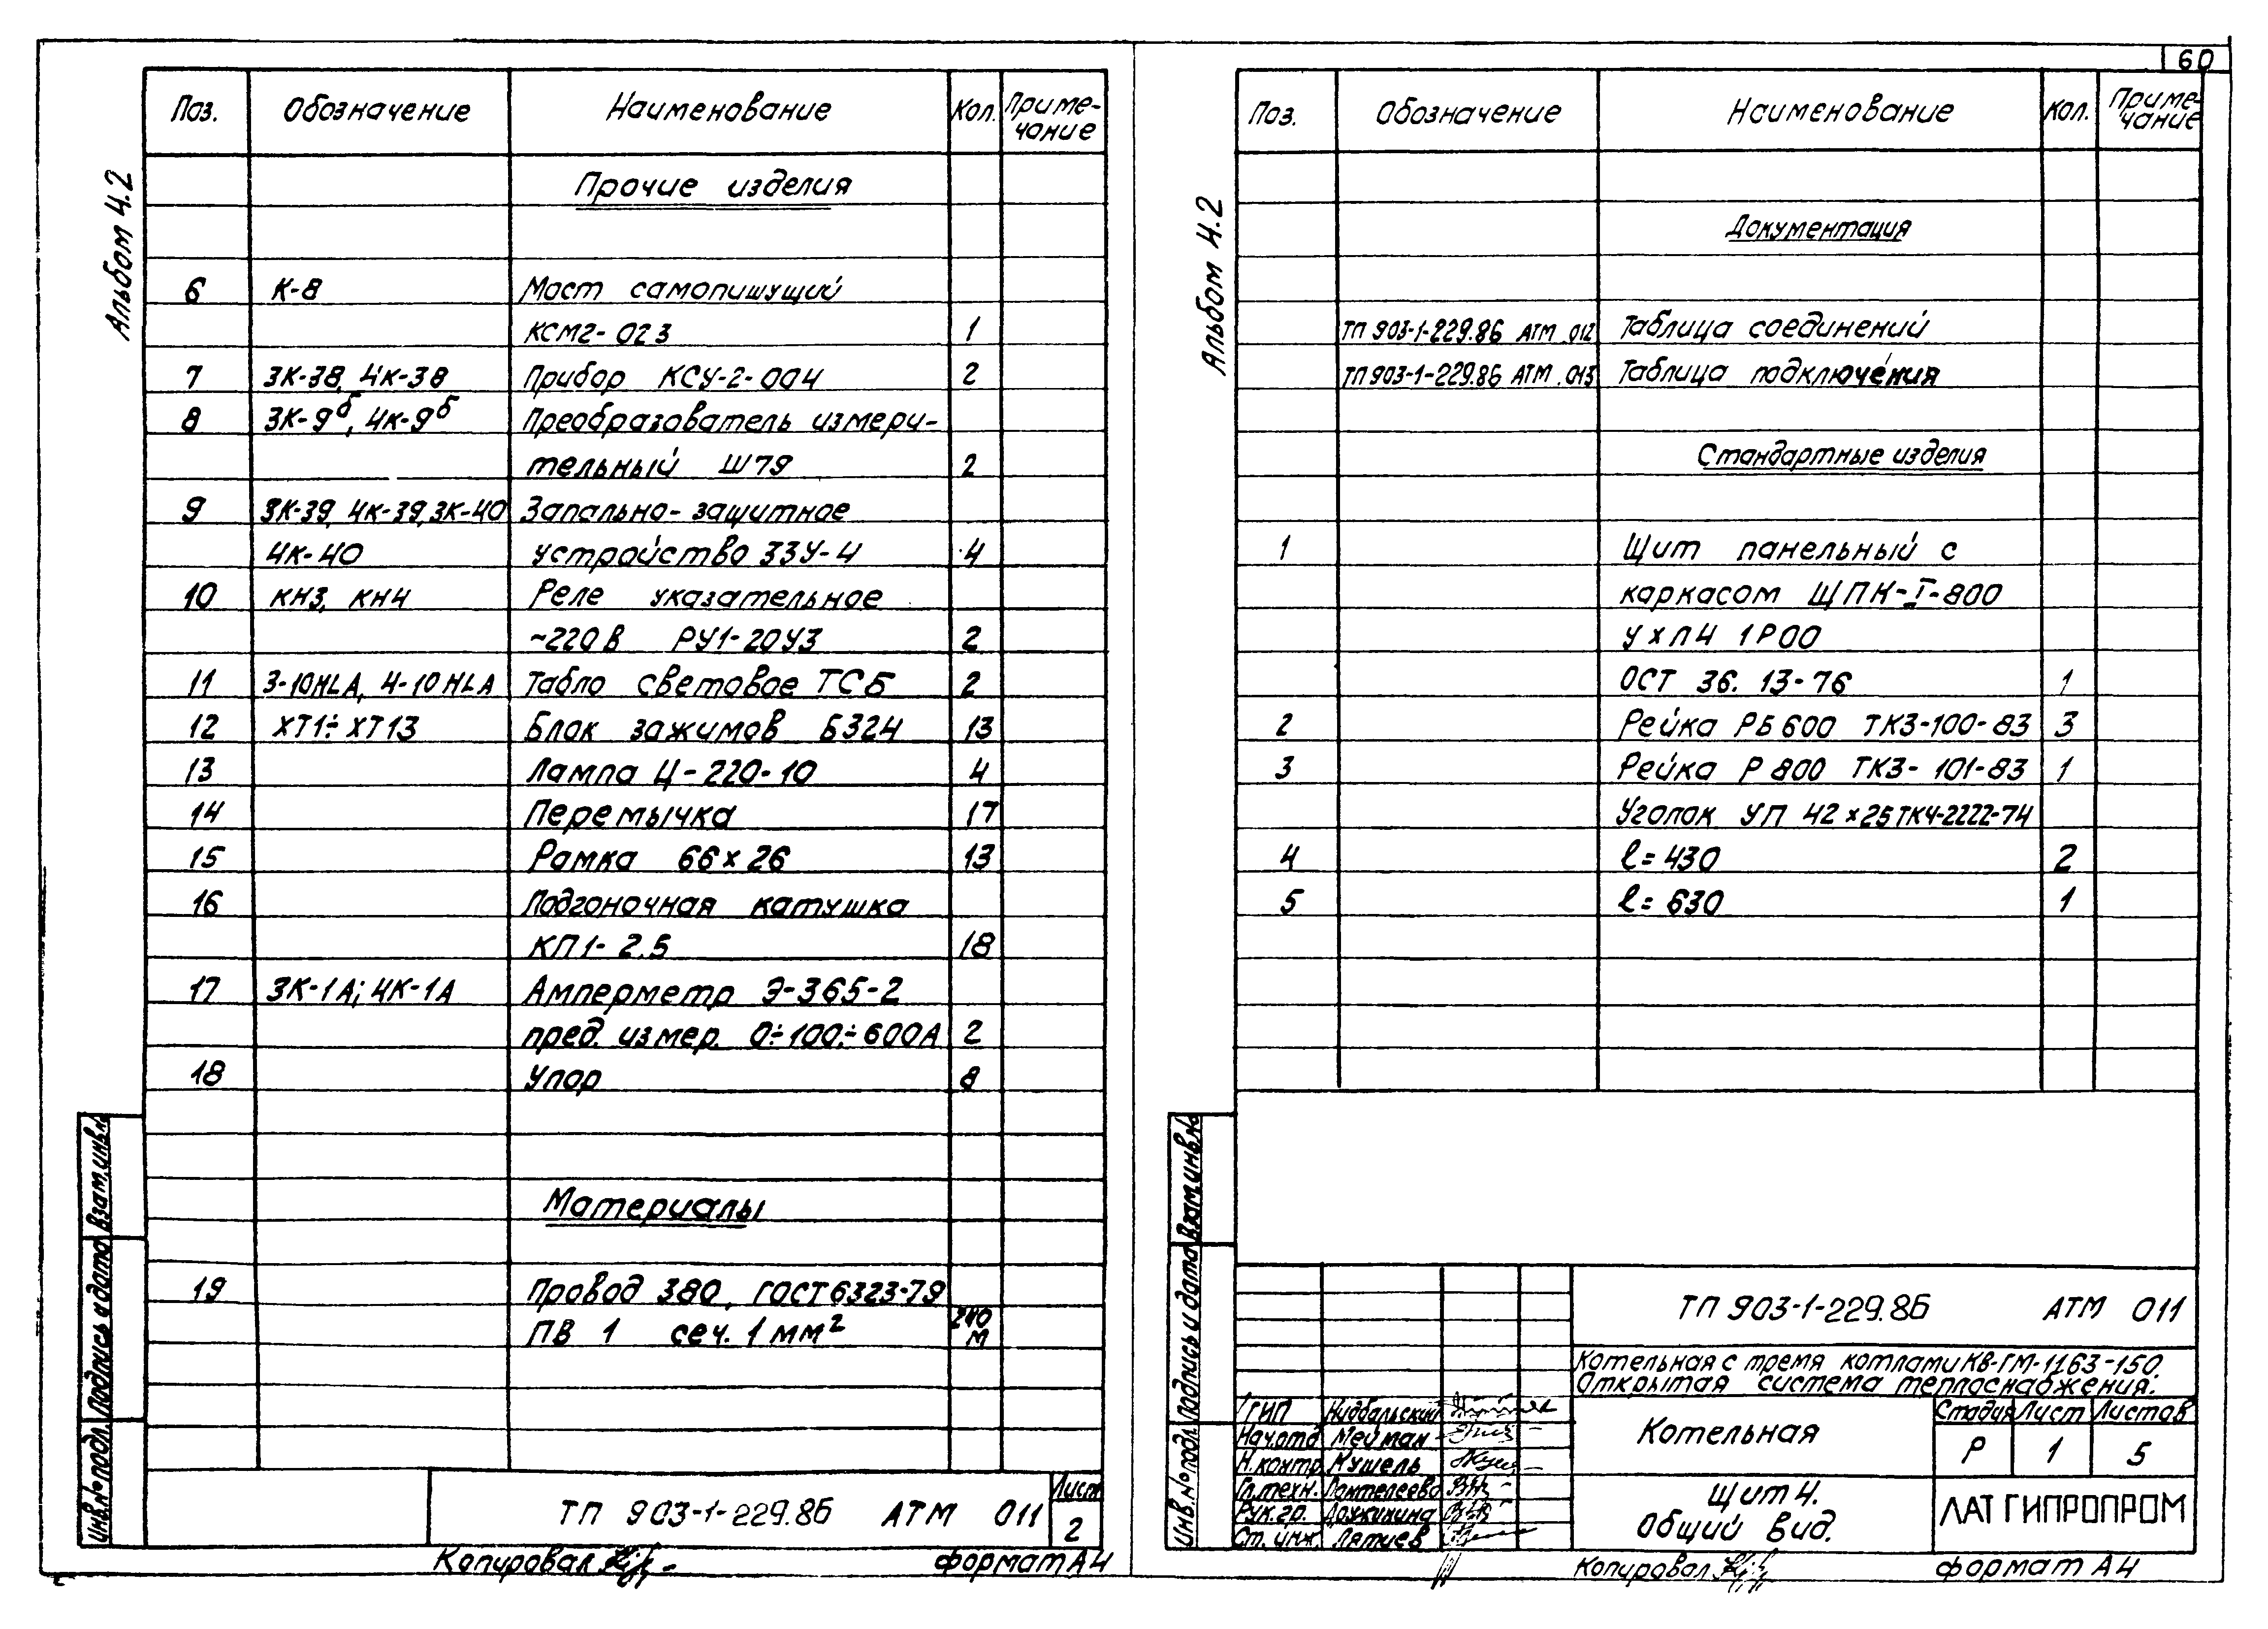 60
Альбом 4.2
Поз. Обозначение Наименование Кол. Приме-
чание
Прочие изделия
6 К-8 Мост самопишущий
КСМ2-023 1
7 3К-38, 4К-38 Прибор КСУ-2-004 2
8 3К-9б, 4К-9б Преобразователь измери-
тельный Ш79 2
9 3К-39, 4К-39, 3К-40 Запально-защитное
4К-40 устройство ЗЗУ-4 4
10 КН3, КН4 Реле указательное
~220 В РУ1-20У3 2
11 3-10HLA, 4-10HLA Табло световое ТСБ 2
12 ХТ1÷ХТ13 Блок зажимов Б324 13
13 Лампа Ц-220-10 4
14 Перемычка 17
15 Рамка 66×26 13
16 Подгоночная катушка
КП1-2.5 18
17 3К-1А; 4К-1А Амперметр Э-365-2
пред. измер. 0÷100÷600А 2
18 Упор 8
Материалы
19 Провод 380, ГОСТ 6323-79
ПВ 1 сеч. 1 мм² 240
м
ТП 903-1-229.86 АТМ 011 Лист
2
Копировал формат А4
Инв.№ подл. Подпись и дата Взам.инв.№
Альбом 4.2
Поз. Обозначение Наименование Кол. Приме-
чание
Документация
ТП 903-1-229.86 АТМ .012 Таблица соединений
ТП 903-1-229.86 АТМ .013 Таблица подключения
Стандартные изделия
1 Щит панельный с
каркасом ЩПК-I-800
УХЛ4 1Р00
ОСТ 36. 13-76 1
2 Рейка РБ 600 ТК3-100-83 3
3 Рейка Р 800 ТК3-101-83 1
Уголок УП 42×25 ТК4-2222-74
4 ℓ=430 2
5 ℓ=630 1
Инв.№ подл. Подпись и дата Взам.инв.№
ТП 903-1-229.86 АТМ 011
Котельная с тремя котлами КВ-ГМ-11.63-150.
Открытая система теплоснабжения.
ГИП Нидбальский
Нач.отд Мейман
Н.контр Мушель
Гл.техн. Пантелеева
Рук.гр.
Ст. инж.
Котельная
Стадия Лист Листов
Р 1 5
Щит 4.
Общий вид.
ЛАТГИПРОПРОМ
Копировал формат А4